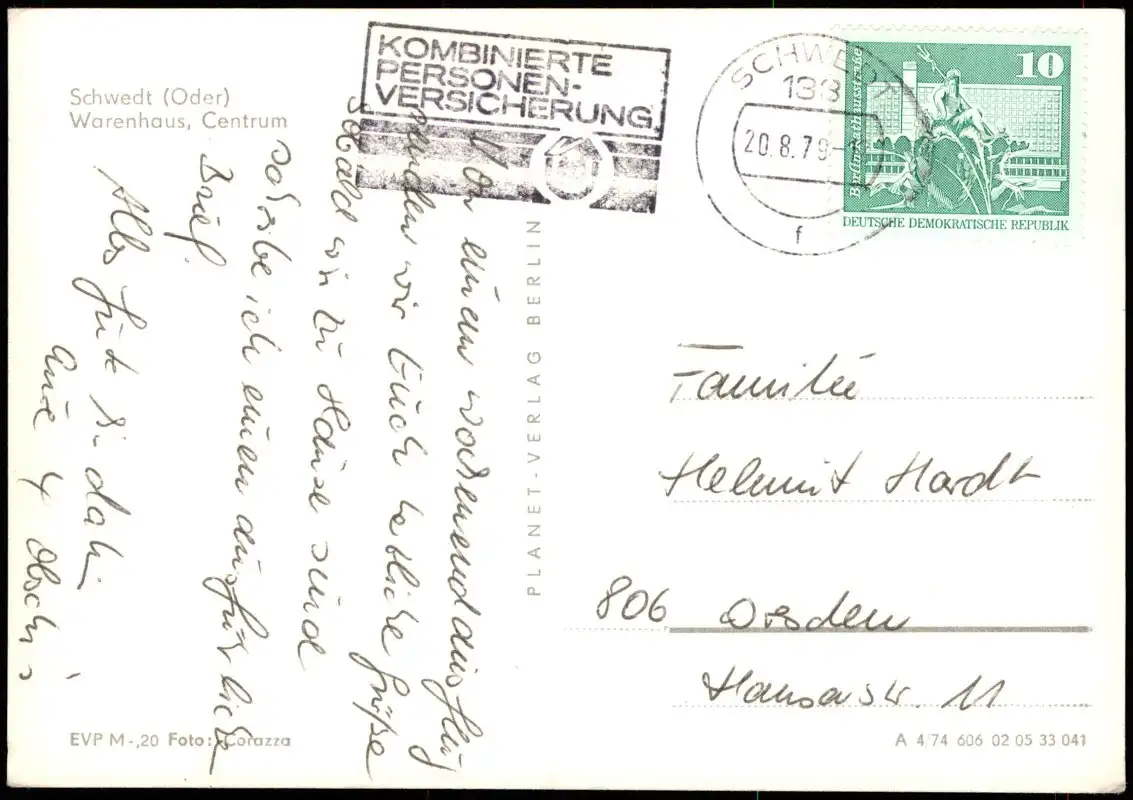 Schwedt (Oder)
Warenhaus, Centrum
KOMBINIERTE
PERSONEN-
VERSICHERUNG
SCHWEDT
133
20.8.79
f
10
Berlin Rathausstraße
DEUTSCHE DEMOKRATISCHE REPUBLIK
Von einem Wochenendausflug
senden wir Euch herzliche Grüße
Sobald wir zu Hause sind
schreibe ich einen ausführlichen
Brief.
Alles Gute bis dahin
Eure 4
PLANET-VERLAG BERLIN
Familie
Helmut Hardt
806 Dresden
Hansastr. 11
EVP M -,20 Foto: Corazza
A 4/74 606 02 05 33 041